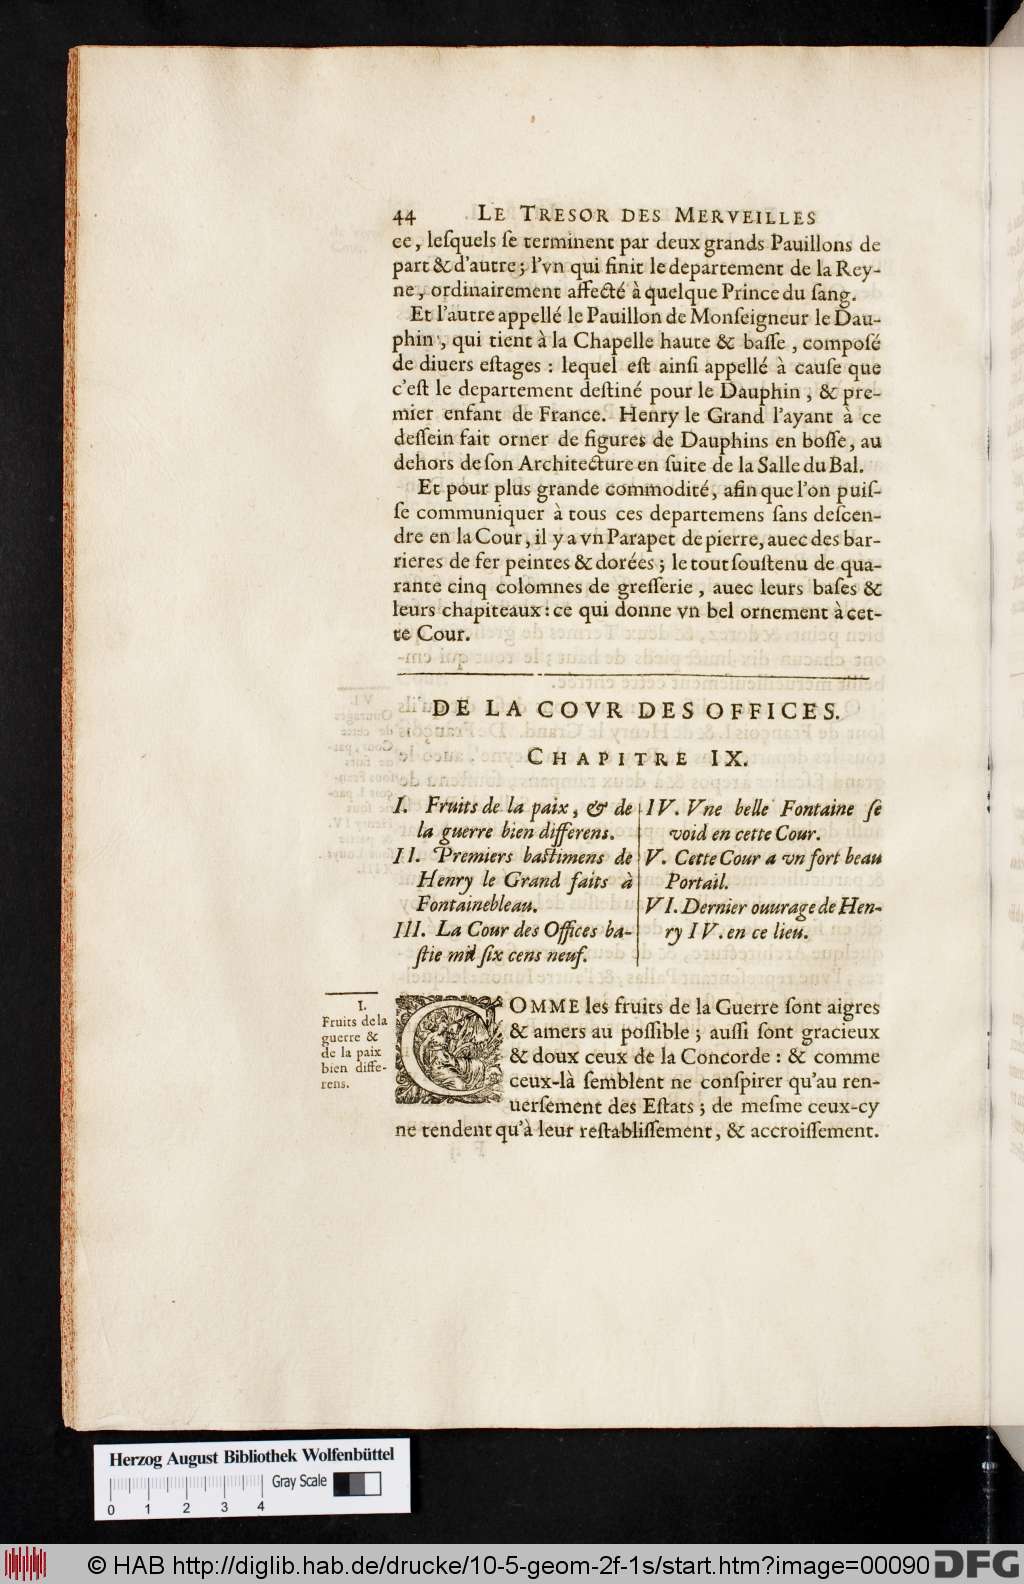 44 LE TRESOR DES MERVEILLES
ce, leſquels ſe terminent par deux grands Pauillons de
part & d'autre; l'vn qui finit le departement de la Rey-
ne, ordinairement affecté à quelque Prince du ſang.
Et l'autre appellé le Pauillon de Monſeigneur le Dau-
phin, qui tient à la Chapelle haute & baſſe, compoſé
de diuers eſtages: lequel eſt ainſi appellé à cauſe que
c'eſt le departement deſtiné pour le Dauphin, & pre-
mier enfant de France. Henry le Grand l'ayant à ce
deſſein fait orner de figures de Dauphins en boſſe, au
dehors de ſon Architecture en ſuite de la Salle du Bal.
Et pour plus grande commodité, afin que l'on puiſ-
ſe communiquer à tous ces departemens ſans deſcen-
dre en la Cour, il y a vn Parapet de pierre, auec des bar-
rieres de fer peintes & dorées; le tout ſouſtenu de qua-
rante cinq colomnes de greſſerie, auec leurs baſes &
leurs chapiteaux: ce qui donne vn bel ornement à cet-
te Cour.
DE LA COVR DES OFFICES.
CHAPITRE IX.
I. Fruits de la paix, & de
la guerre bien differens.
II. Premiers baſtimens de
Henry le Grand faits à
Fontainebleau.
III. La Cour des Offices ba-
ſtie mil ſix cens neuf.
IV. Vne belle Fontaine ſe
void en cette Cour.
V. Cette Cour a vn fort beau
Portail.
VI. Dernier ouurage de Hen-
ry IV. en ce lieu.
I.
Fruits de la
guerre &
de la paix
bien diffe-
rens.
COMME les fruits de la Guerre ſont aigres
& amers au poſſible; auſſi ſont gracieux
& doux ceux de la Concorde: & comme
ceux-là ſemblent ne conſpirer qu'au ren-
uerſement des Eſtats; de meſme ceux-cy
ne tendent qu'à leur reſtabliſſement, & accroiſſement.
Herzog August Bibliothek Wolfenbüttel
0 1 2 3 4 Gray Scale
© HAB http://diglib.hab.de/drucke/10-5-geom-2f-1s/start.htm?image=00090 DFG